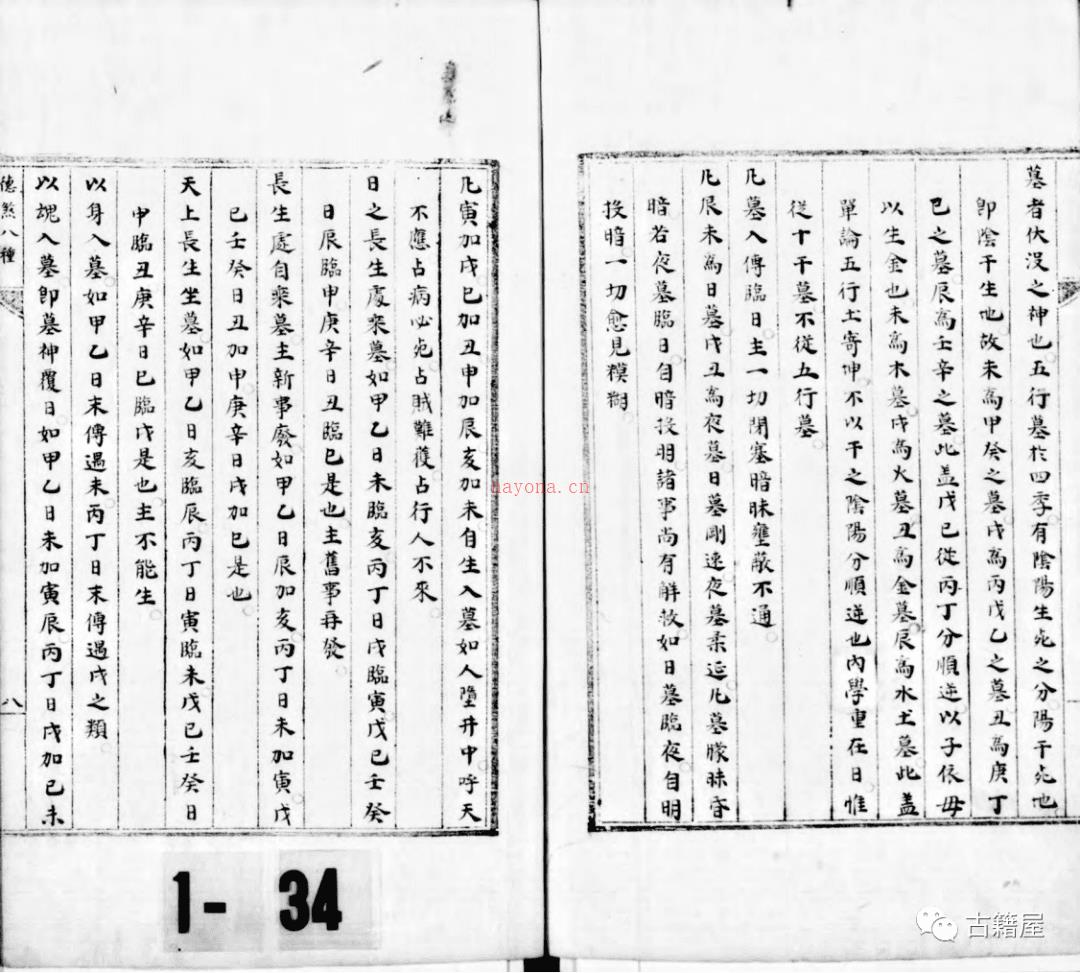 墓者伏沒之神也五行墓於四季有陰陽生死之分陽干死也
即陰干生也故未為甲癸之墓戌為丙戊乙之墓丑為庚丁
己之墓辰為壬辛之墓此蓋戊己從丙丁分順逆以子依母
以生金也未為木墓戌為火墓丑為金墓辰為水土墓此蓋
單論五行土寄坤不以干之陰陽分順逆也內學重在日惟
從十干墓不從五行墓
凡墓入傳臨日主一切閉塞暗昧壅蔽不通
凡辰未為日墓戌丑為夜墓日墓剛速夜墓柔延凡墓朦昧昏
暗若夜墓臨日自暗投明諸事尚有解救如日墓臨夜自明
投暗一切愈見模糊
凡寅加戌巳加丑申加辰亥加未自生入墓如人墮井中呼天
不應占病必死占賊難獲占行人不來
日之長生處來墓如甲乙日未臨亥丙丁日戌臨寅戊己壬癸
日辰臨申庚辛日丑臨巳是也主舊事再發
長生處自乘墓主新事廢如甲乙日辰加亥丙丁日未加寅戊
己壬癸日丑加申庚辛日戌加巳是也
天上長生坐墓如甲乙日亥臨辰丙丁日寅臨未戊己壬癸日
申臨丑庚辛日巳臨戌是也主不能生
以身入墓如甲乙日末傳遇未丙丁日末傳遇戌之類
以魂入墓即墓神覆日如甲乙日未加寅辰丙丁日戌加巳未
德煞八種
八
1- 34
hayona.cn
古籍屋